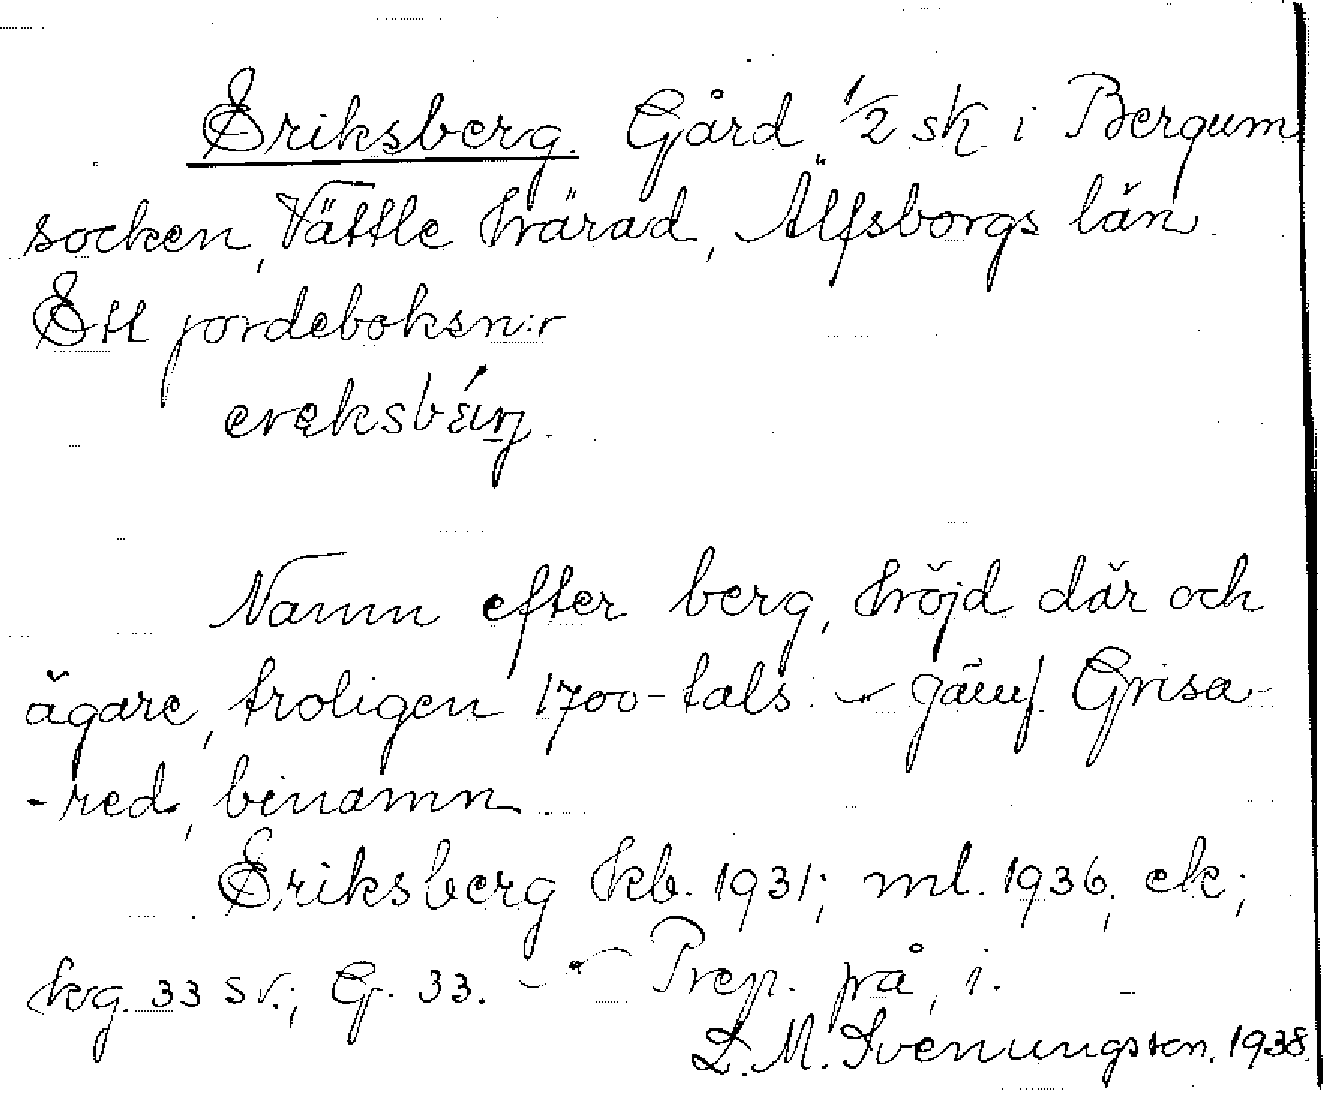 Eriksberg. Gård 1/2 sk i Bergum
socken, Vättle härad, Älfsborgs län.
Ett jordeboksn:r
Namn efter berg, höjd där och
ägare, troligen 1700-tals. – Jämf. Grisa-
-red, binamn.
Eriksberg hb. 1931; ml. 1936; ek;
hg. 33 sv.; G. 33. – Prep. på, i.
L. M. Svenungsson. 1938.